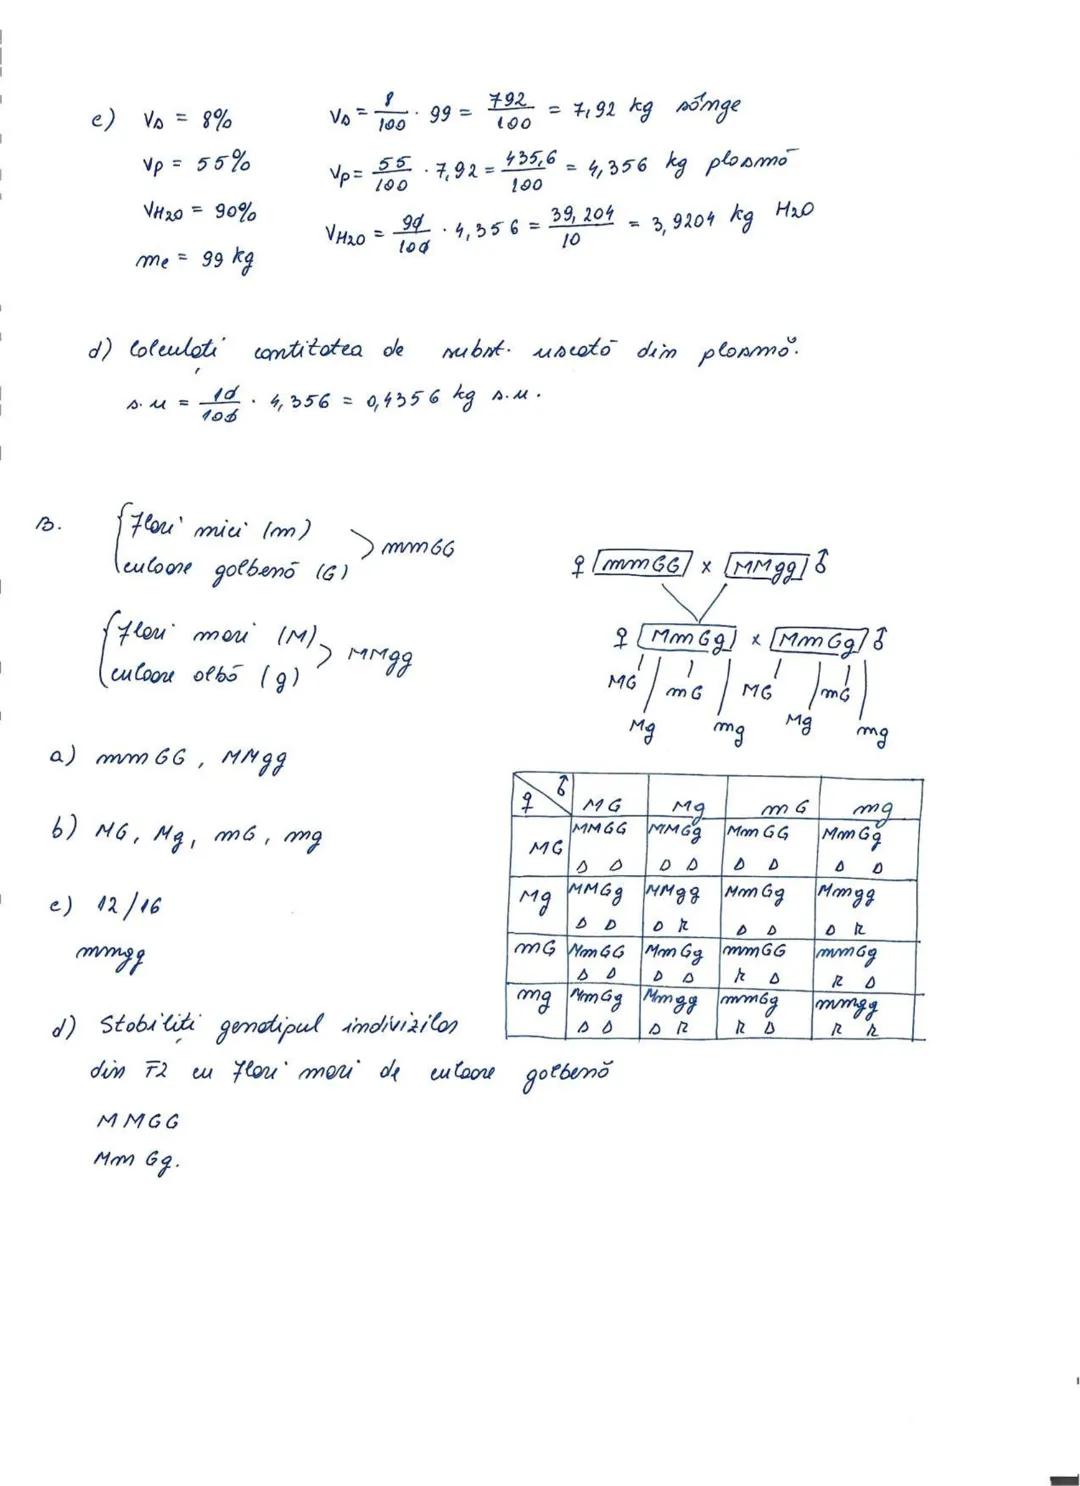 c) Vs = 8%
Vs = 8/100 · 99 = 792/100 = 7,92 kg sânge
Vp = 55%
Vp = 55/100 · 7,92 = 435,6/100 = 4,356 kg plasmă
VH2O = 90%
VH2O = 90/100 · 4,356 = 39,204/10 = 3,9204 kg H2O
me = 99 kg
d) Calculați cantitatea de subst. uscată din plasmă.
s.u = 10/100 · 4,356 = 0,4356 kg s.u.
B.
Flori mici (m)
culoare galbenă (G)
mmGG
Flori mari (M)
culoare albă (g)
MMgg
♀ mmGG x MMgg ♂
♀ MmGg x MmGg ♂
MG mG MG mG
Mg mg Mg mg
a) mmGG, MMgg
b) MG, Mg, mG, mg
c) 12/16
mmgg
d) Stabiliți genotipul indivizilor
din F2 cu flori mari de culoare galbenă
MMGG
Mm Gg.
♀ ♂ MG Mg mG mg
MG MMGG MMGg MmGG MmGg
D D D D D D D D
Mg MMGg MMgg MmGg Mmgg
D D D R D D D R
mG MmGG MmGg mmGG mmGg
D D D D R D R D
mg MmGg Mmgg mmGg mmgg
D D D R R D R R